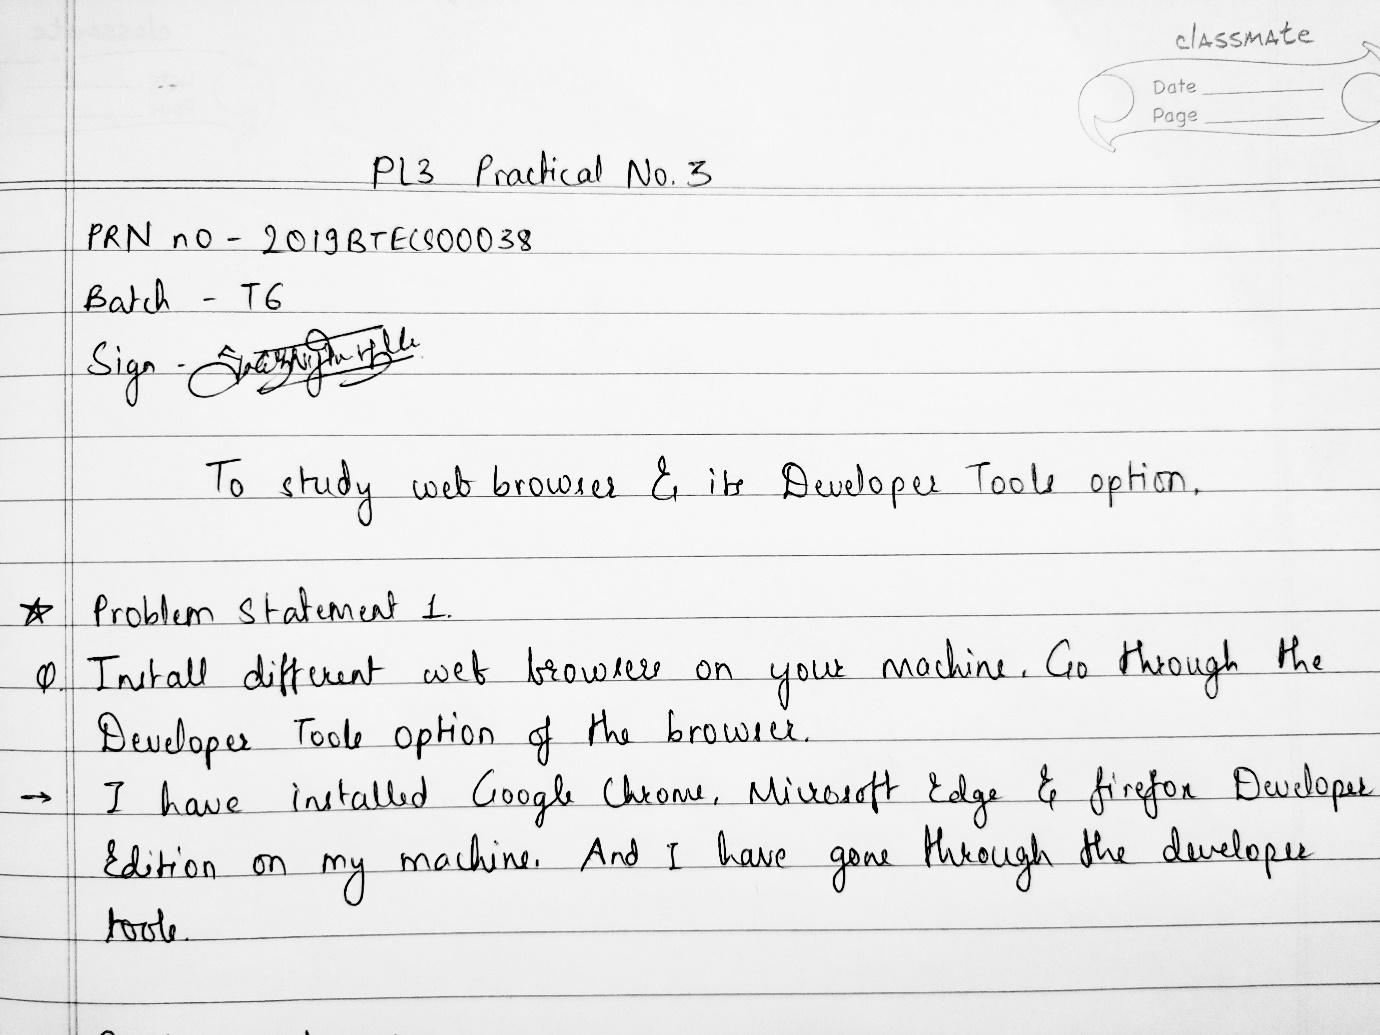 classmate
Date
Page
PL3 Practical No. 3
PRN no - 2019BTECS00038
Batch - T6
Sign -
To study web browser & its Developer Tools option.
Problem Statement 1.
Q. Install different web browsers on your machine. Go through the
Developer Tools option of the browser.
→ I have installed Google Chrome, Microsoft Edge & firefox Developer
Edition on my machine. And I have gone through the developer
tools.